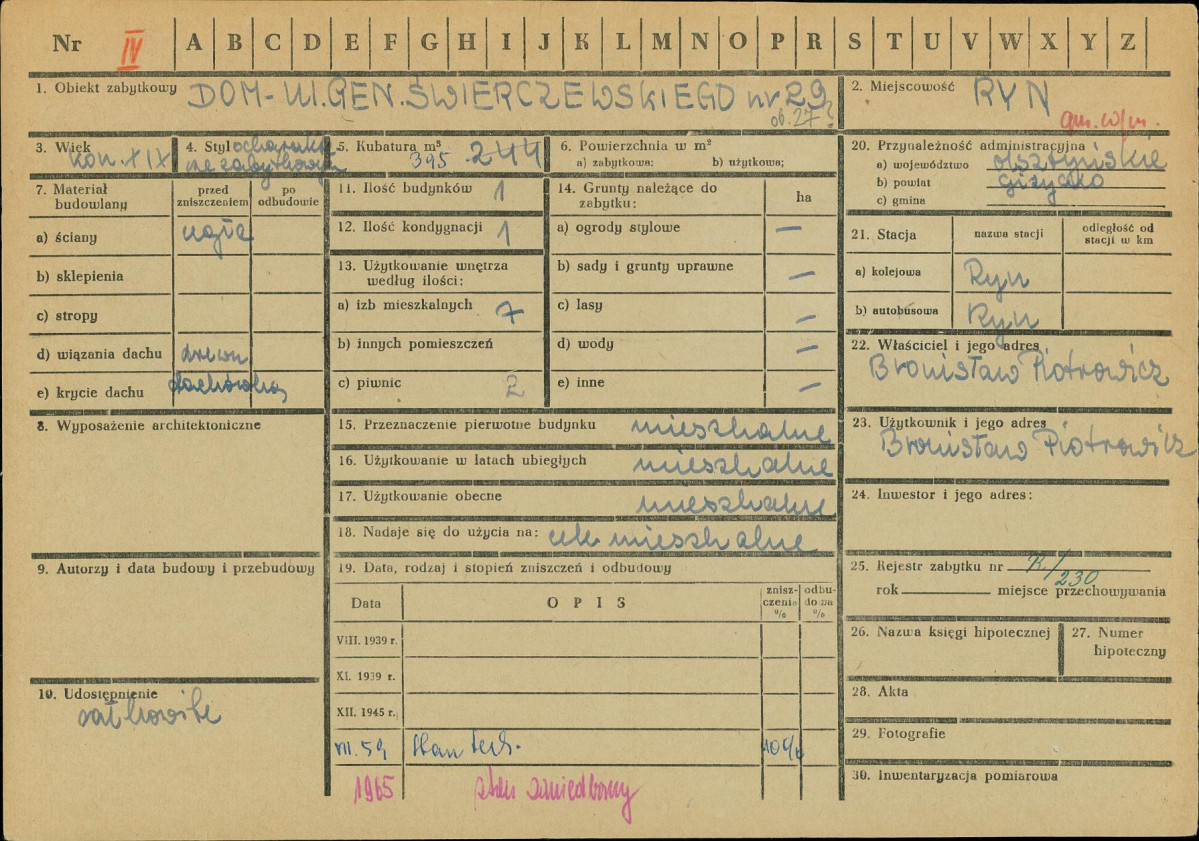 Nr IV A B C D E F G H I J K L M N O P R S T U V W X Y Z
1. Obiekt zabytkowy DOM - Ul. GEN. ŚWIERCZEWSKIEGO nr 29
ob. 27?
2. Miejscowość RYN
gm. w/m.
3. Wiek kon. XIX
4. Styl o charakt.
nie zabytkowym
5. Kubatura m³
395 244
6. Powierzchnia w m²
a) zabytkowa: b) użytkowa:
7. Materiał budowlany
przed zniszczeniem
po odbudowie
a) ściany cegła
b) sklepienia
c) stropy
d) wiązania dachu drewn
e) krycie dachu dachówka
8. Wyposażenie architektoniczne
9. Autorzy i data budowy i przebudowy
10. Udostępnienie
całkowite
11. Ilość budynków 1
12. Ilość kondygnacji 1
13. Użytkowanie wnętrza
według ilości:
a) izb mieszkalnych 7
b) innych pomieszczeń
c) piwnic 2
14. Grunty należące do
zabytku: ha
a) ogrody stylowe —
b) sady i grunty uprawne —
c) lasy —
d) wody —
e) inne —
15. Przeznaczenie pierwotne budynku mieszkalne
16. Użytkowanie w latach ubiegłych mieszkalne
17. Użytkowanie obecne mieszkalne
18. Nadaje się do użycia na: cele mieszkalne
19. Data, rodzaj i stopień zniszczeń i odbudowy
Data OPIS znisz-czenia % odbu-dowa %
VIII. 1939 r.
XI. 1939 r.
XII. 1945 r.
VII. 59 Stan tech. 10%
1965 stan zaniedbany
20. Przynależność administracyjna
a) województwo olsztyńskie
b) powiat giżycko
c) gmina
21. Stacja nazwa stacji odległość od stacji w km
a) kolejowa Ryn
b) autobusowa Ryn
22. Właściciel i jego adres
Bronisław Piotrowicz
23. Użytkownik i jego adres
Bronisław Piotrowicz
24. Inwestor i jego adres:
25. Rejestr zabytku nr K/230
rok miejsce przechowywania
26. Nazwa księgi hipotecznej
27. Numer
hipoteczny
28. Akta
29. Fotografie
30. Inwentaryzacja pomiarowa